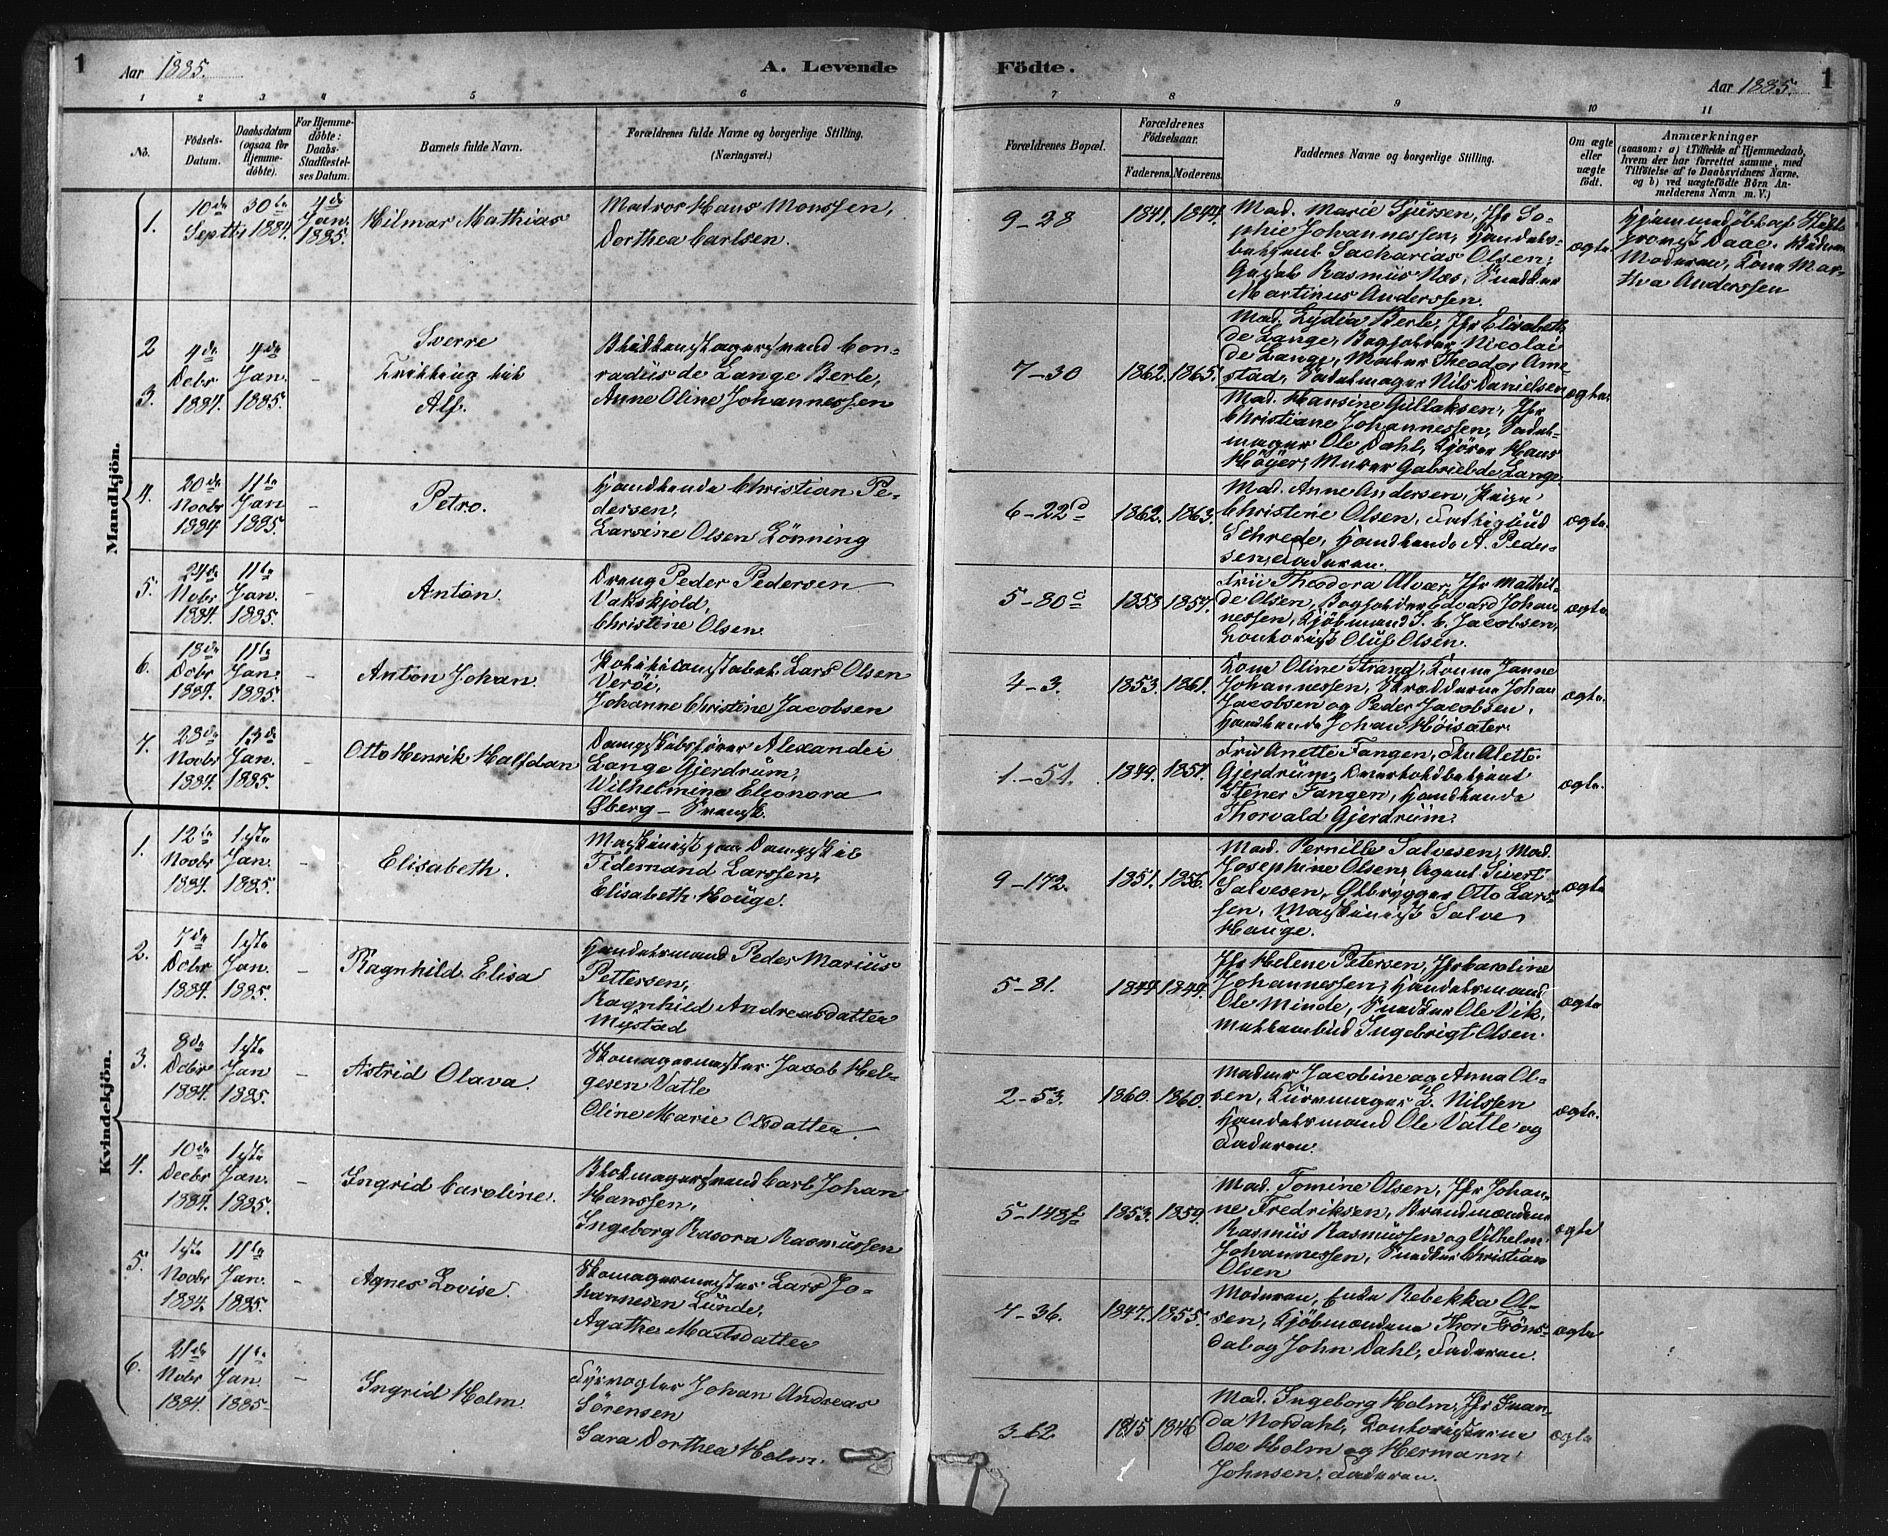 1 Aar 1885. A. Levende Födte. Aar 1885. 1
1 2 3 4 5 6 7 8 9 10 11
No.
Födsels-Datum.
Daabsdatum (ogsaa for Hjemme-döbte).
For Hjemme-döbte: Daabs-Stadfæstel-ses Datum.
Barnets fulde Navn.
Forældrenes fulde Navne og borgerlige Stilling.
(Næringsvei.)
Forældrenes Bopæl.
Forældrenes Födselsaar.
Faderens. Moderens.
Faddernes Navne og borgerlige Stilling.
Om ægte eller uægte födt.
Anmærkninger
(saasom: a) i Tilfælde af Hjemmedaab,
hvem der har forrettet samme, med
Tilföielse af to Daabsvidners Navne.
og b) ved uægtefödte Börn An-
melderens Navn m. V.)
Mandkjön.
1. 10de Septbr 30te 1884. 4de Jan. 1885. Hilmar Mathias
Matros Hans Monssen,
Dorthea Carlsen.
9-28 1841. 1844.
Mad. Marie Sjursen, Jfr So-
phie Johannessen, Handels-
betjent Sacharias Olsen,
Rasmus Næs, Snedker
Martinus Anderssen.
ægte
Hjemmedøbt af
Daae.
Moderen, Kone Mar-
tha Anderssen
2 3. 4de Debr 1884. 4de Jan. 1885. -
Sverre
Tvillingpar
Alf.
Blikkenslagersvend Con-
radius de Lange Berle,
Anne Oline Johannessen
7-30 1862. 1865.
Mad. Lydia Berle, Jfr Elisabeth
de Lange, Bogholder Nicolai
de Lange, Maler Theodor Am-
stad, Sadelmager Nils Danielsen
Mad. Hansine Gullaksen, Jfr
Christiane Johannessen, Sadel-
mager Ole Dahl, Kjører Hans
Høyer, Murer Gabriel de Lange
ægte.
4. 20de Novbr 1884 11te Jan 1885. - Petro.
Handlende Christian Pe-
dersen,
Larsine Olsen Lønning
6-22d 1862. 1863.
Mad. Anne Andersen, Pige
Christine Olsen,
Schrede, Handlende A. Peder-
sen, Faderen.
ægte.
5. 24de Nobr. 1884. 11te Jan. 1885. - Anton.
Dreng Peder Pedersen
Vakskjold,
Christine Olsen.
5-80c 1858 1857.
Frü Theodora Alvær, Jfr Mathil-
de Olsen, Bogholder Edvard Johan-
nessen, Kjøbmand S. C. Jacobsen,
Kontorist Oluf Olsen.
ægte.
6. 18de Debr 1884. 11te Jan. 1885. - Anton Johan.
Politikonstabel Lars Olsen
Verøi,
Johanne Christine Jacobsen
4-3. 1853. 1861.
Kone Oline Strand, Konen Janne
Johannessen, Skrædderne Johan
Jacobsen og Peder Jacobsen,
Handlende Johan Høisæter.
ægte.
7. 23de Novbr 1884. 13de Jan. 1885. - Otto Henrik Halfdan
Dampskibsfører Alexander
Lange Gjerdrüm,
Wilhelmine Eleonora
Øberg - Svensk.
1.-51. 1849. 1857.
Frü Anette Fangen, Alette
Gjerdrüm, Overtoldbetjent
Stener Fangen, Handlende
Thorvald Gjerdrüm.
ægte.
Kvindekjön.
1. 12te Novbr 1884. 1ste Jan. 1885. - Elisabeth.
Maskinist paa Dampskib
Tidemand Larssen,
Elisabeth Houge.
9-172. 1851. 1856.
Mad. Pernille Salvesen, Mad.
Josephine Olsen, Agent Sivert
Salvesen, Ølbrygger Otto Lars-
sen, Maskinist Salve
Hauge.
ægte
2. 7de Debr 1884. 1ste Jan. 1885. - Ragnhild Elisa
Handelsmand Peder Marius
Pettersen,
Ragnhild Andreasdatter
Mystad
5-81. 1844 1844.
Jfr Helene Petersen, Jfr Caroline
Johannessen, Handelsmand
Ole Minde, Snedker Ole Vik,
Mæklerbud Ingebrigt Olsen.
ægte
3. 8de Debr 1884. 1ste Jan 1885. - Astrid Olava.
Skomagermester Jacob Hel-
gesen Vatle
Oline Marie Olsdatter.
2-53. 1860. 1860.
Mad. Jacobine og Anna Ol-
sen, Kurvmager L. Nilssen
Handelsmand Ole Vatle og
Faderen.
ægte.
4. 10de Decbr 1884. 1ste Jan. 1885. - Ingrid Caroline.
Blokmagersvend Carl Johan
Hanssen,
Ingeborg Rasora Rasmussen
5-148f 1853. 1859.
Mad. Tomine Olsen, Jfr Johan-
ne Fredriksen, Brandmændene
Rasmus Rasmüssen og Vilhelm
Johannessen, Snedker Christian
Olsen
ægte
5. 1ste Novbr 1884. 11te Jan. 1885. - Agnes Lovise.
Skomagermester Lars Jo-
hannesen Lünde,
Agathe Madsdatter
4-36. 1847. 1855.
Moderen, Enke Rebekka Ol-
sen, Kjøbmændene Thor Frøns-
dal og John Dahl, Faderen.
ægte
6. 21de Nobr. 1884. 11te Jan. 1885 - Ingrid Holm
Fyrvogter Johan Andreas
Sörensen
Sara Dorthea Holm.
3-62. 1815 1846
Mad. Ingeborg Holm, Jfr Svan-
da Nordahl, Kontoristerne
Ove Holm og Hermann
Johnsen, Faderen.
ægte